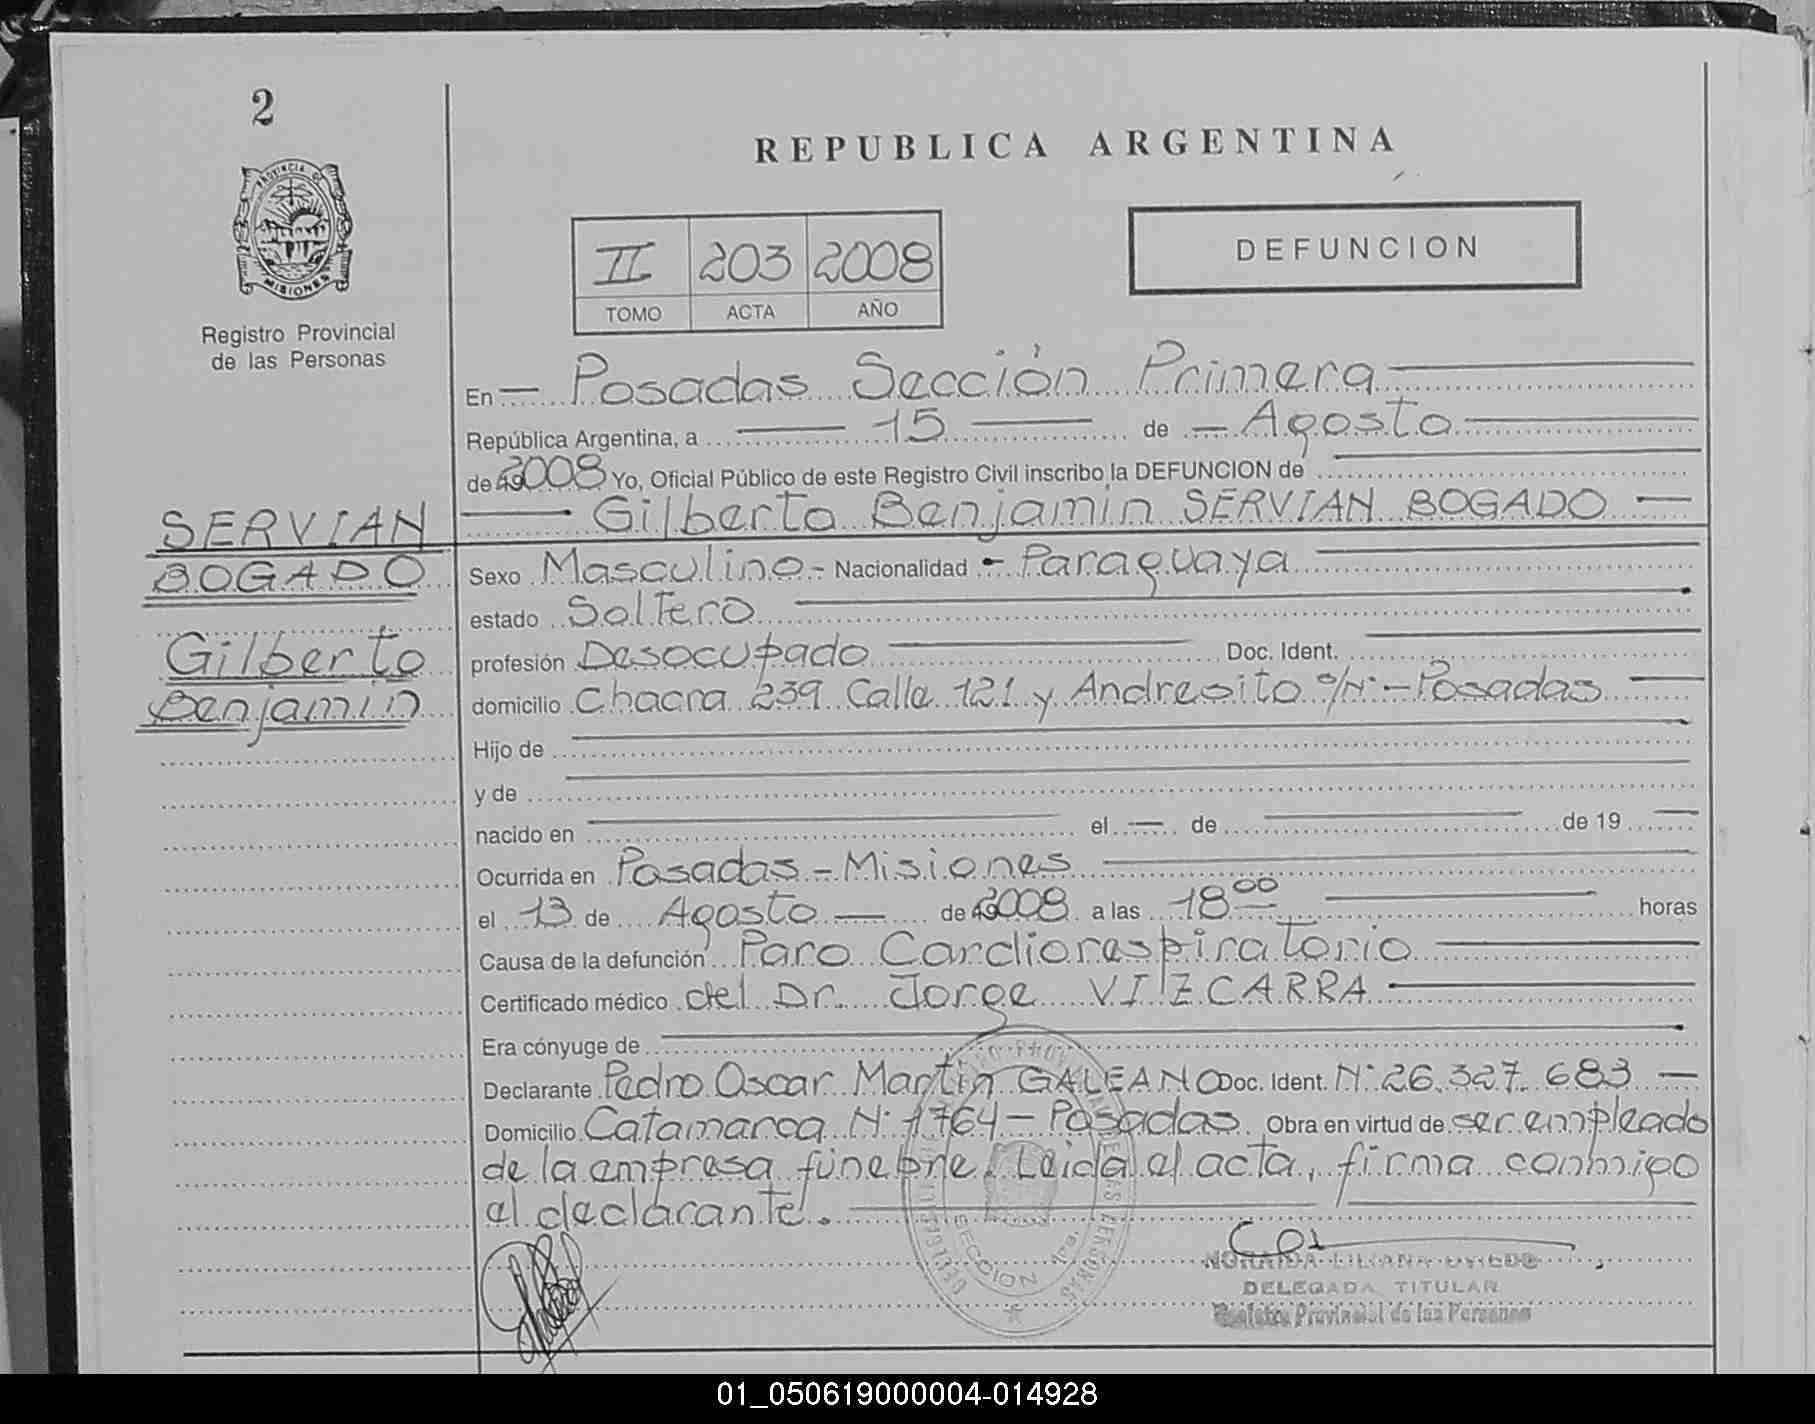 2
REPUBLICA ARGENTINA
PROVINCIA DE
MISIONES
Registro Provincial
de las Personas
II 203 2008
TOMO ACTA AÑO
DEFUNCION
En Posadas Sección Primera
República Argentina, a 15 de Agosto
de 2008 Yo, Oficial Público de este Registro Civil inscribo la DEFUNCION de
Gilberto Benjamin SERVIAN BOGADO
SERVIAN
BOGADO
Gilberto
Benjamin
Sexo Masculino - Nacionalidad - Paraguaya
estado Soltero
profesión Desocupado Doc. Ident.
domicilio Chacra 239 Calle 121 y Andresito S/N° - Posadas
Hijo de
y de
nacido en el de de 19
Ocurrida en Posadas - Misiones
el 13 de Agosto de 2008 a las 18 00 horas
Causa de la defunción Paro Cardiorespiratorio
Certificado médico del Dr. Jorge VIZCARRA
Era cónyuge de
Declarante Pedro Oscar Martin GALEANO Doc. Ident. N° 26.327.683
Domicilio Catamarca N° 1764 - Posadas Obra en virtud de ser empleado
de la empresa fúnebre. Leida el acta, firma conmigo
el declarante.
SECCION 1ra.
DELEGADA TITULAR
Registro Provincial de las Personas
01_050619000004-014928